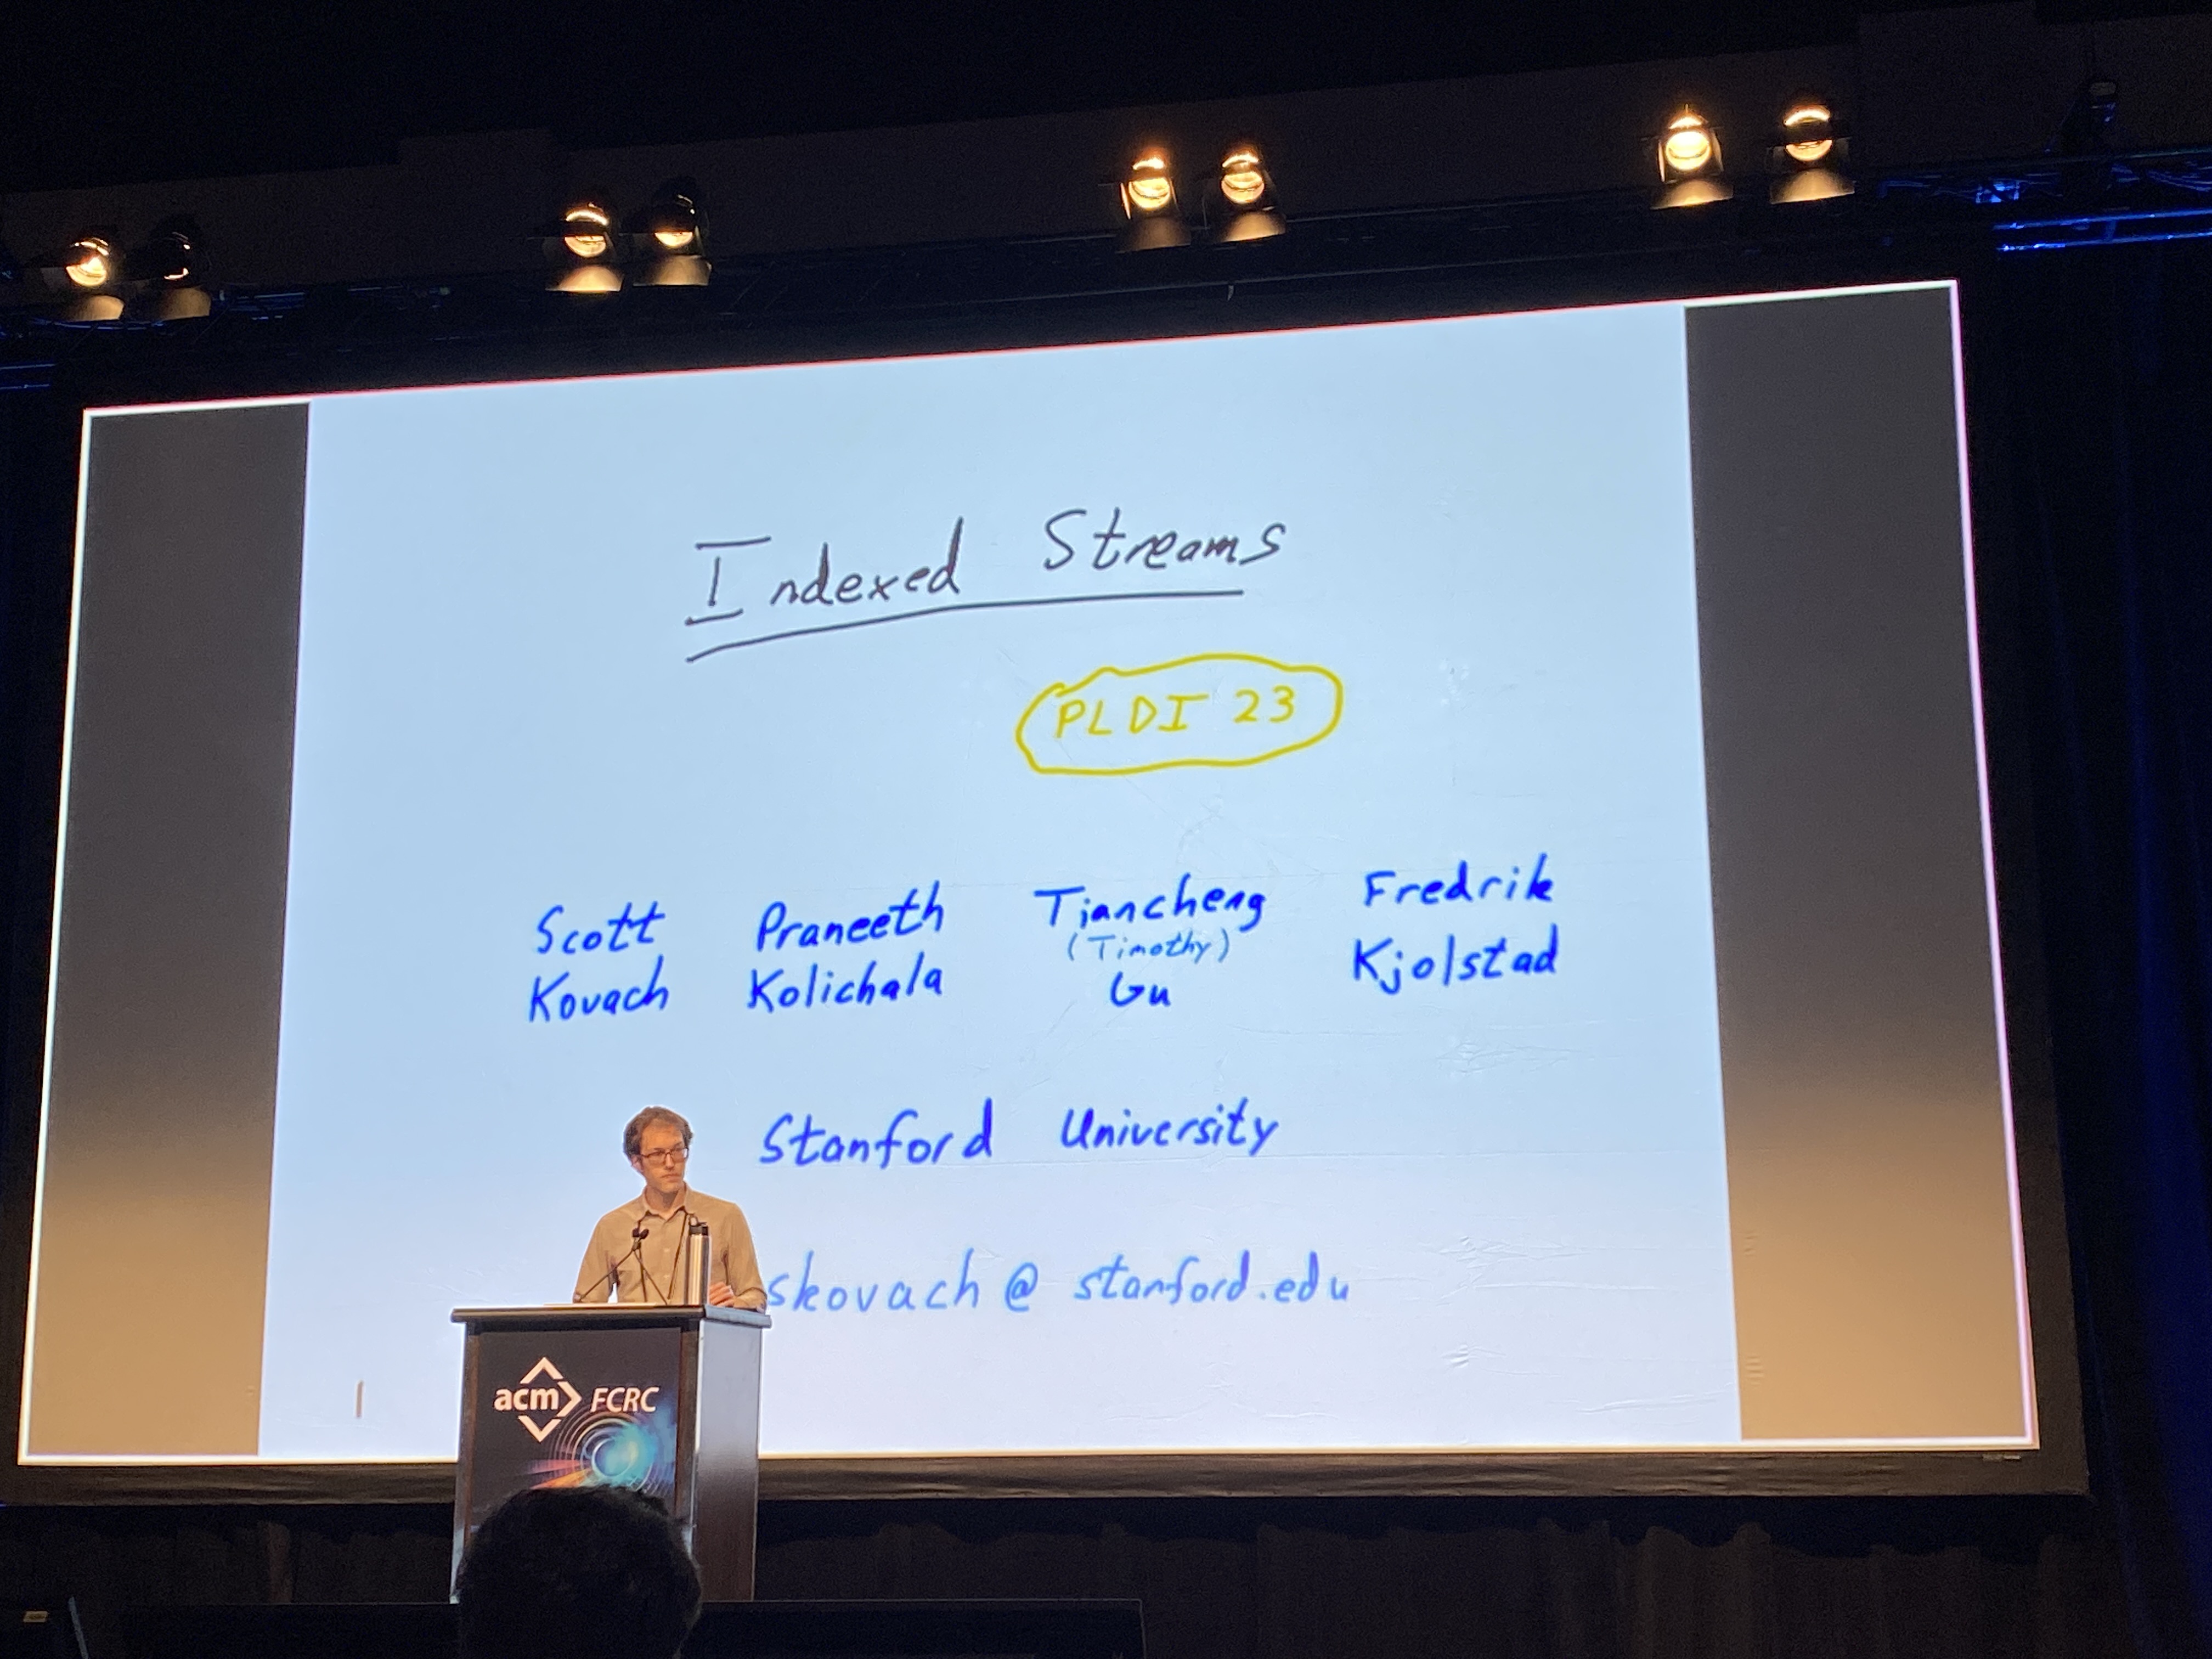 Indexed Streams
PLDI 23
Scott Kovach
Praneeth Kolichala
Tiancheng
(Timothy)
Gu
Fredrik Kjolstad
Stanford University
skovach@stanford.edu
acm FCRC